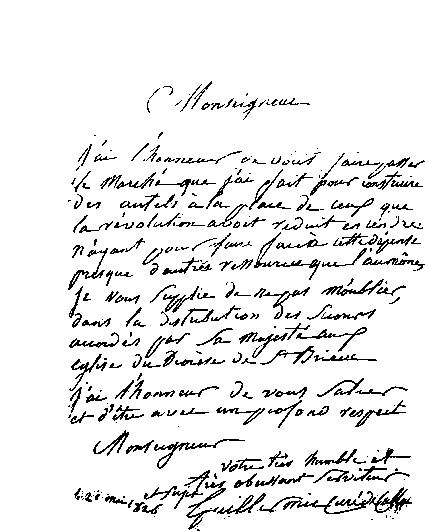 Monseigneur
j'ai l'honneur de vous faire passer
le Marché que j'ai fait pour construire
des autels à la place de ceux que
la révolution avoit reduit en cendre
n'ayant pour faire face à cette dépense
presque d'autres ressources que l'aumône,
je vous supplie de ne pas m'oublier,
dans la distribution des secours
accordés par Sa Majesté aux
eglise du Diocèse de St Brieuc
j'ai l'honneur de vous saluer
et d'être avec un profond respect
Monseigneur
votre très humble et
très obeissant serviteur
mai 1826 Guillermic curé de